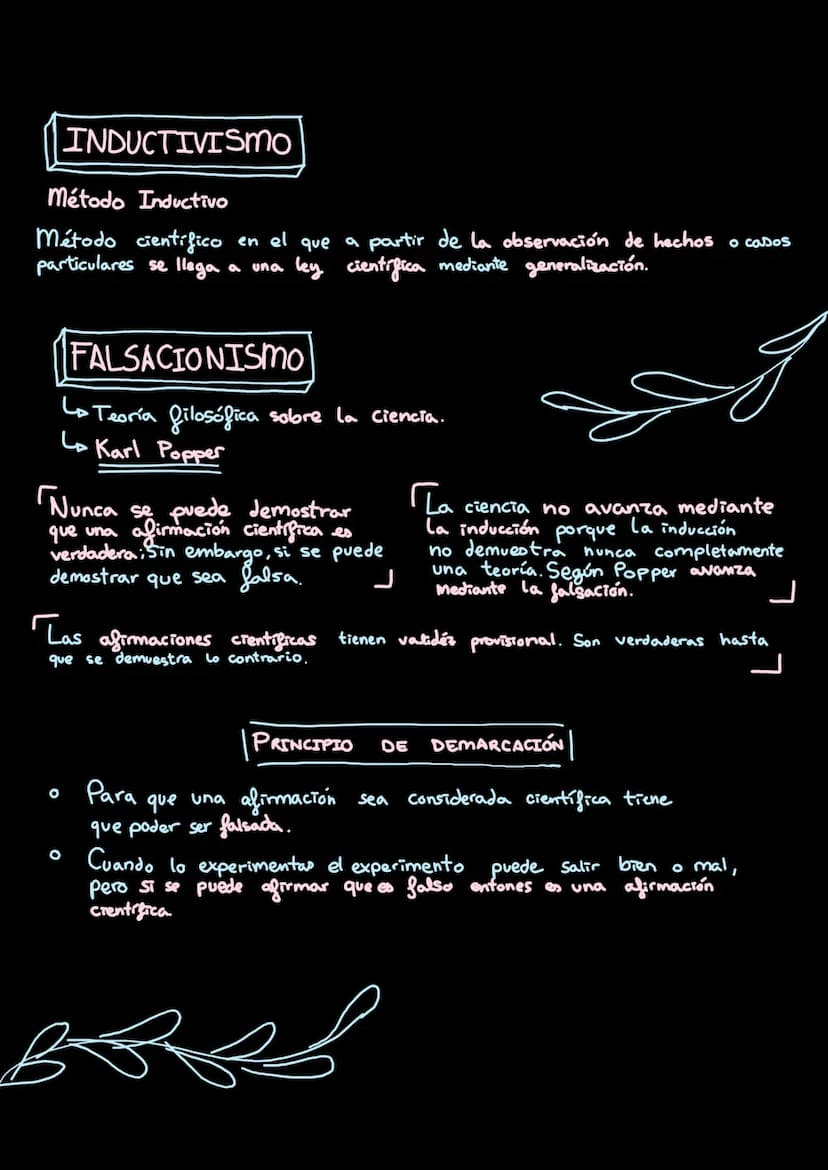 INDUCTIVISMO
Método Inductivo
Método científico en el que a partir de la observación de hechos o casos
particulares se llega a una ley científica mediante generalización.
FALSACIONISMO
↳ Teoría filosófica sobre la ciencia.
↳ Karl Popper
Nunca se puede demostrar
que una afirmación científica es
verdadera; Sin embargo, si se puede
demostrar que sea falsa.
La ciencia no avanza mediante
la inducción porque la inducción
no demuestra nunca completamente
una teoría. Según Popper avanza
mediante la falsación.
Las afirmaciones científicas tienen validéz provisional. Son verdaderas hasta
que se demuestra lo contrario.
PRINCIPIO DE DEMARCACIÓN
Para que una afirmación sea considerada científica tiene
que poder ser falsada.
Cuando lo experimentas el experimento puede salir bien o mal,
pero si se puede afirmar que es falso entones es una afirmación
científica